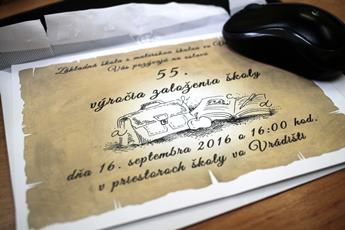 Základná škola s materskou školou vo V
Vás pozývajú na oslavu
55.
výročia založenia školy
dňa 16. septembra 2016 o 16:00 hod.
v priestoroch školy vo Vrádišti